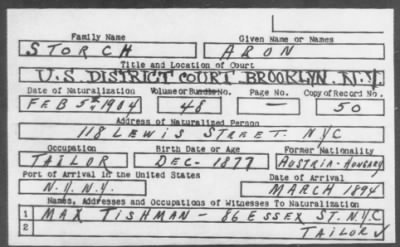 Family Name Given Name or Names
STORCH ARON
Title and Location of Court
U.S. DISTRICT COURT BROOKLYN. N.Y.
Date of Naturalization Volume or Bundle No. Page No. Copy of Record No.
FEB 5TH 1904 48 — 50
Address of Naturalized Person
118 LEWIS STREET. NYC
Occupation Birth Date or Age Former Nationality
TAILOR DEC- 1877 AUSTRIA-HUNGARY
Port of Arrival in the United States Date of Arrival
N.Y. N.Y. MARCH 1894
Names, Addresses and Occupations of Witnesses To Naturalization
1 MAX TISHMAN — 86 ESSEX ST. N.Y.C
2 TAILOR